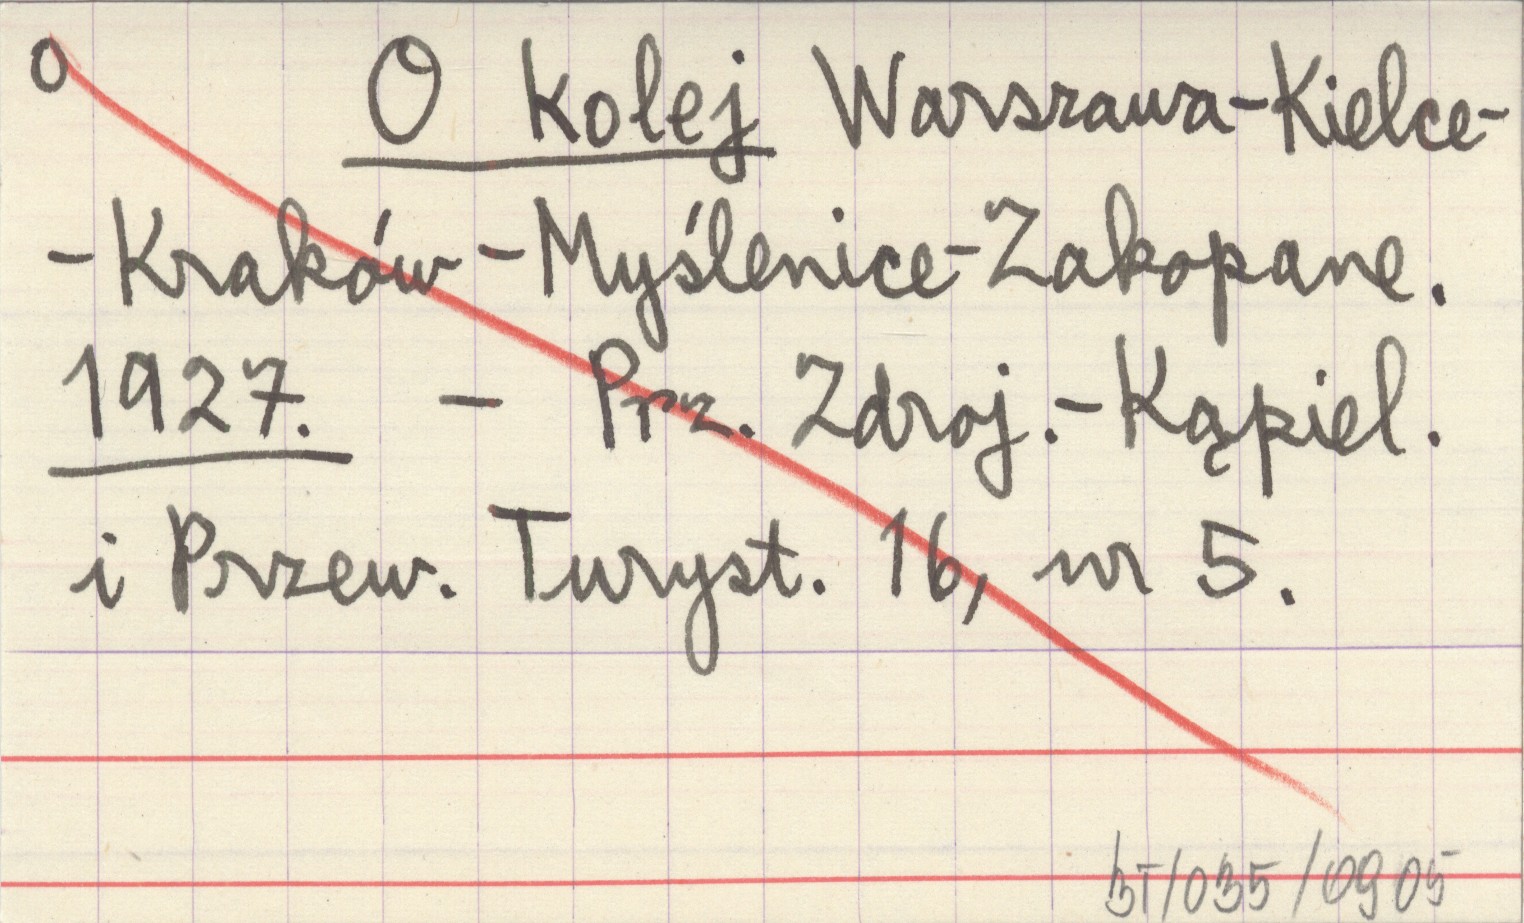 O O kolej Warszawa-Kielce-
-Kraków-Myślenice-Zakopane.
1927. - Prz. Zdroj.-Kąpiel.
i Przew. Turyst. 16, nr 5.
BT/035/0905